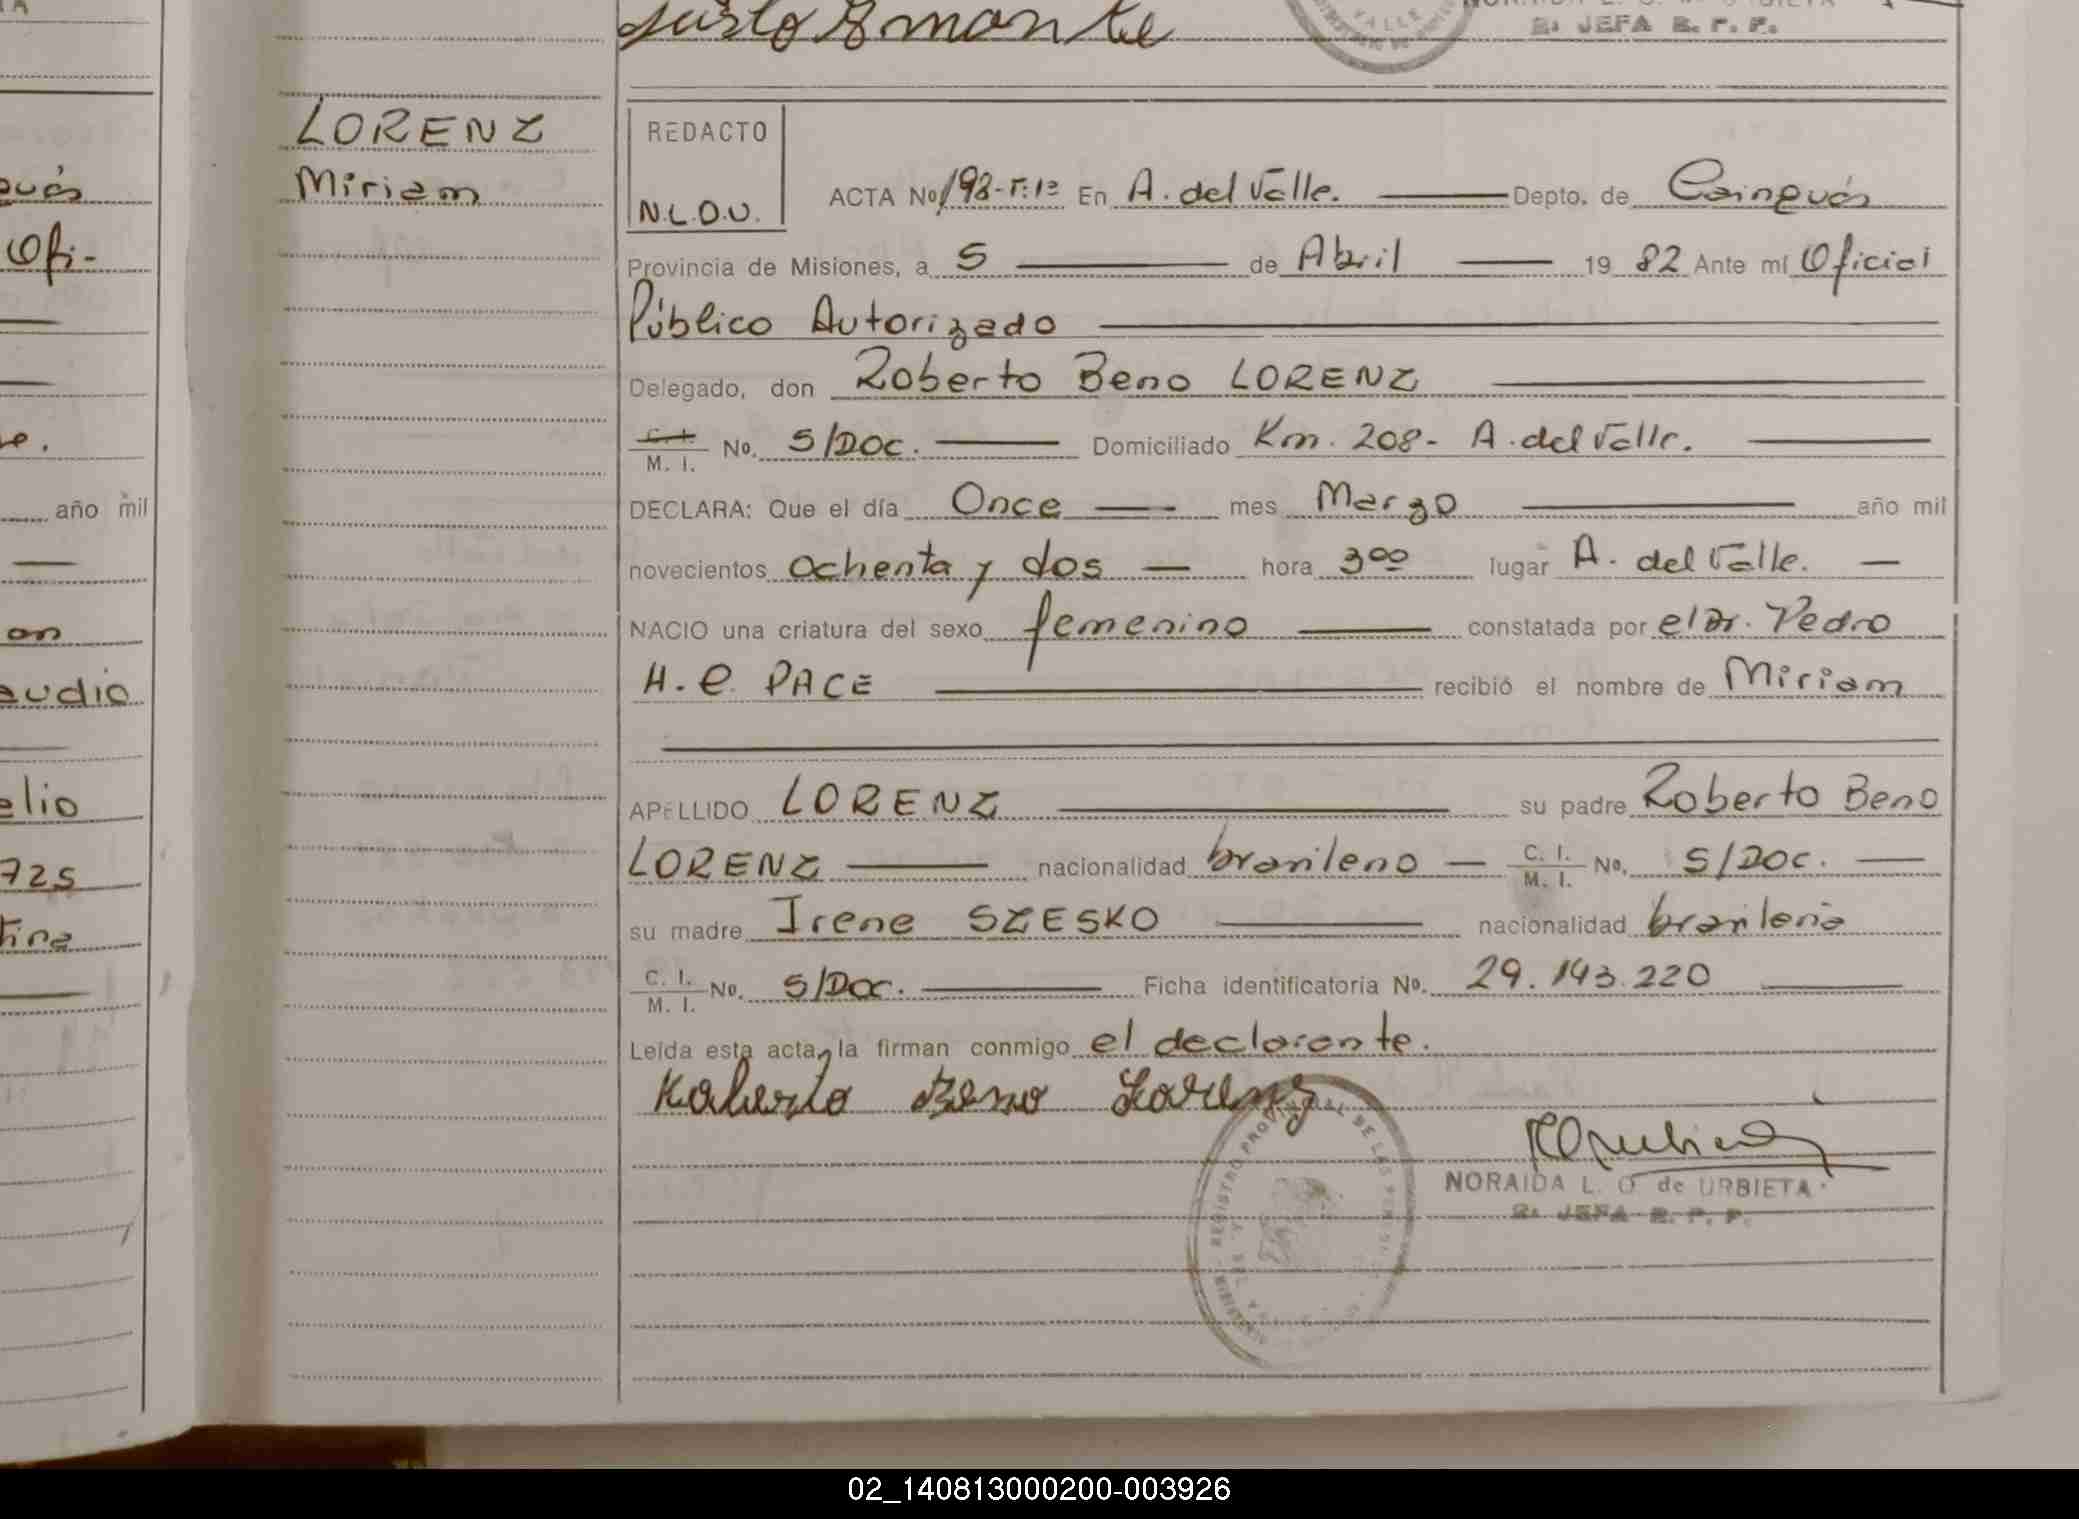 Justo Emonte
VALLE
2a JEFA R. P. P.
LORENZ
Miriam
REDACTO
N.L.O.U.
ACTA No 198-T:1º En A. del Valle. Depto. de Cainguás
Provincia de Misiones, a 5 de Abril 19 82 Ante mí Oficial
Público Autorizado
Delegado, don Roberto Beno LORENZ
C. I. / M. I. No. S/DOC. Domiciliado Km. 208- A. del Valle.
DECLARA: Que el día Once mes Marzo año mil
novecientos ochenta y dos hora 3ºº lugar A. del Valle.
NACIO una criatura del sexo femenino constatada por el Dr. Pedro
H. C. PACE recibió el nombre de Miriam
APELLIDO LORENZ su padre Roberto Beno
LORENZ nacionalidad brasileno C. I. / M. I. No. S/DOC.
su madre Irene SZESKO nacionalidad brasileña
C. I. / M. I. No. S/DOC. Ficha identificatoria No. 29.143.220
Leída esta acta, la firman conmigo el declarante.
Roberto Beno Lorenz
NORAIDA L. O. de URBIETA
2a JEFA R. P. P.
guás
Ofi-
año mil
audio
elio
725
tina
02_140813000200-003926